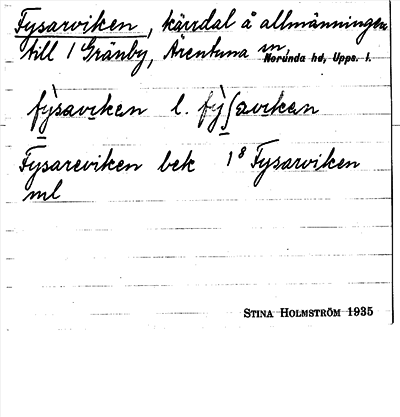 Fysarviken, kärrdal å allmänningen
till 1 Gränby, Ärentuna sn,
Norunda hd, Upps. l.
fỳsaviken l. fỳʃaviken
Fysareviken bek 1⁸ Fysarviken
ml
STINA HOLMSTRÖM 1935